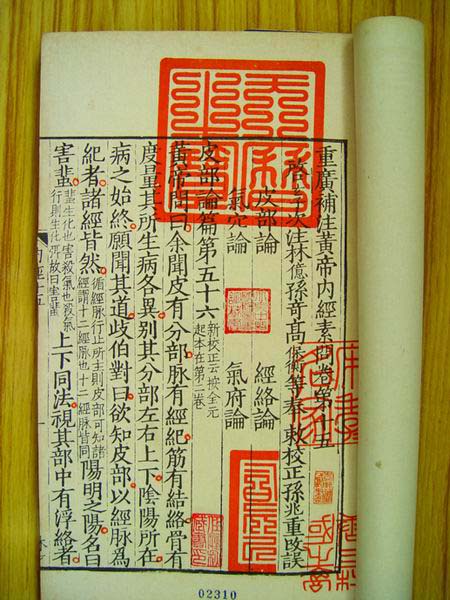 重廣補注黃帝內經素問卷第十五
啟玄子次注林億孫奇高保衡等奉敕校正孫兆重改誤
皮部論 經絡論
氣穴論 氣府論
皮部論篇第五十六
新校正云按全元
起本在第二卷
黃帝問曰余聞皮有分部脉有經紀筋有結絡骨有
度量其所生病各異別其分部左右上下陰陽所在
病之始終願聞其道歧伯對曰欲知皮部以經脉爲
紀者諸經皆然
循經脉行止所主則皮部可知諸
經謂十二經脉也十二經脉皆同
陽明之陽名曰
害蜚
蜚生化也害殺氣也殺氣
行則生化弭故曰害蜚
上下同法視其部中有浮絡者
內經十五
02310